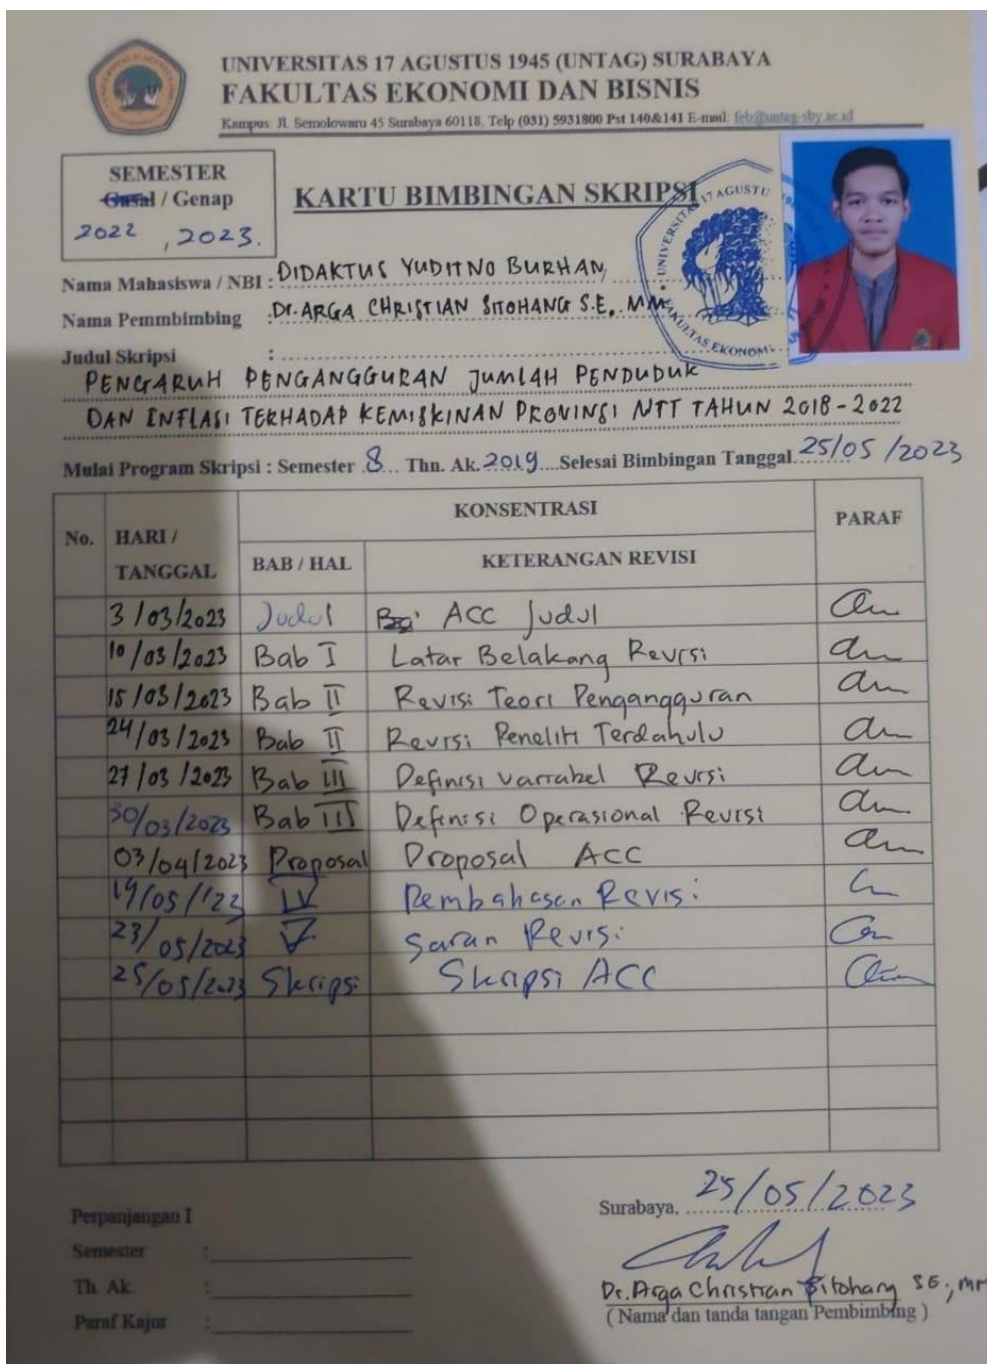 UNIVERSITAS 17 AGUSTUS 1945 (UNTAG) SURABAYA
FAKULTAS EKONOMI DAN BISNIS
Kampus: Jl. Semolowaru 45 Surabaya 60118, Telp (031) 5931800 Pst 140&141 E-mail: feb@untag-sby.ac.id
SEMESTER
Gasal / Genap
2022 , 2023.
KARTU BIMBINGAN SKRIPSI
UNIVERSITAS 17 AGUSTU
FAKULTAS EKONOMI
Nama Mahasiswa / NBI : DIDAKTUS YUDITNO BURHAN,
Nama Pemmbimbing : Dr. ARGA CHRISTIAN SITOHANG S.E, MM
Judul Skripsi :
PENGARUH PENGANGGURAN JUMLAH PENDUDUK
DAN INFLASI TERHADAP KEMISKINAN PROVINSI NTT TAHUN 2018 - 2022
Mulai Program Skripsi : Semester 8 Thn. Ak. 2019 Selesai Bimbingan Tanggal 25/05/2023
No. HARI / TANGGAL KONSENTRASI PARAF
BAB / HAL KETERANGAN REVISI
3/03/2023 Judul ACC Judul
10/03/2023 Bab I Latar Belakang Revisi
15/03/2023 Bab II Revisi Teori Pengangguran
24/03/2023 Bab II Revisi Peneliti Terdahulu
27/03/2023 Bab III Definisi Variabel Revisi
30/03/2023 Bab III Definisi Operasional Revisi
03/04/2023 Proposal Proposal ACC
19/05/'23 IV Pembahasan Revisi
23/05/2023 V Saran Revisi
25/05/2023 Skripsi Skripsi ACC
Surabaya, 25/05/2023
Perpanjangan I
Semester :
Th. Ak. :
Paraf Kajur :
Dr. Arga Christian Sitohang SE., MM
( Nama dan tanda tangan Pembimbing )